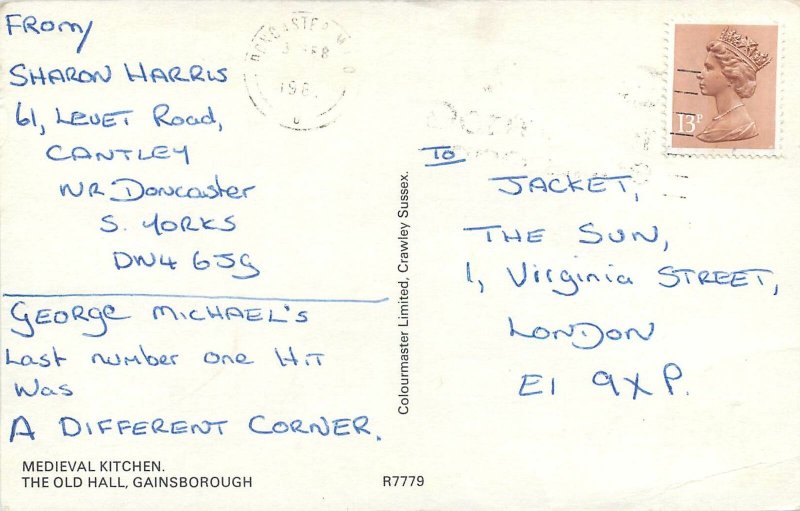 From
SHARON HARRIS
61, LEVET Road,
CANTLEY
NR Doncaster
S. YORKS
DN4 6JG
GEORGE MICHAEL'S
Last number one HIT
Was
A DIFFERENT CORNER.
MEDIEVAL KITCHEN.
THE OLD HALL, GAINSBOROUGH
R7779
Colourmaster Limited, Crawley Sussex.
13P
To
JACKET,
THE SUN,
1, Virginia STREET,
LONDON
E1 9XP.